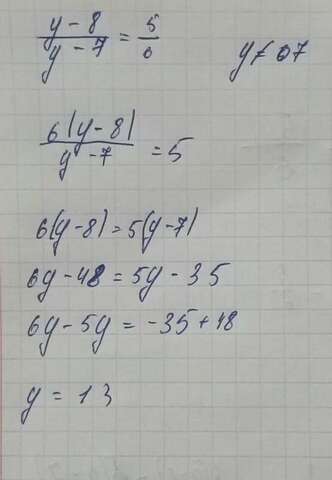 y - 8 / y - 7 = 5 / 6 y ≠ 7
6(y - 8) / y - 7 = 5
6(y - 8) = 5(y - 7)
6y - 48 = 5y - 35
6y - 5y = -35 + 48
y = 13